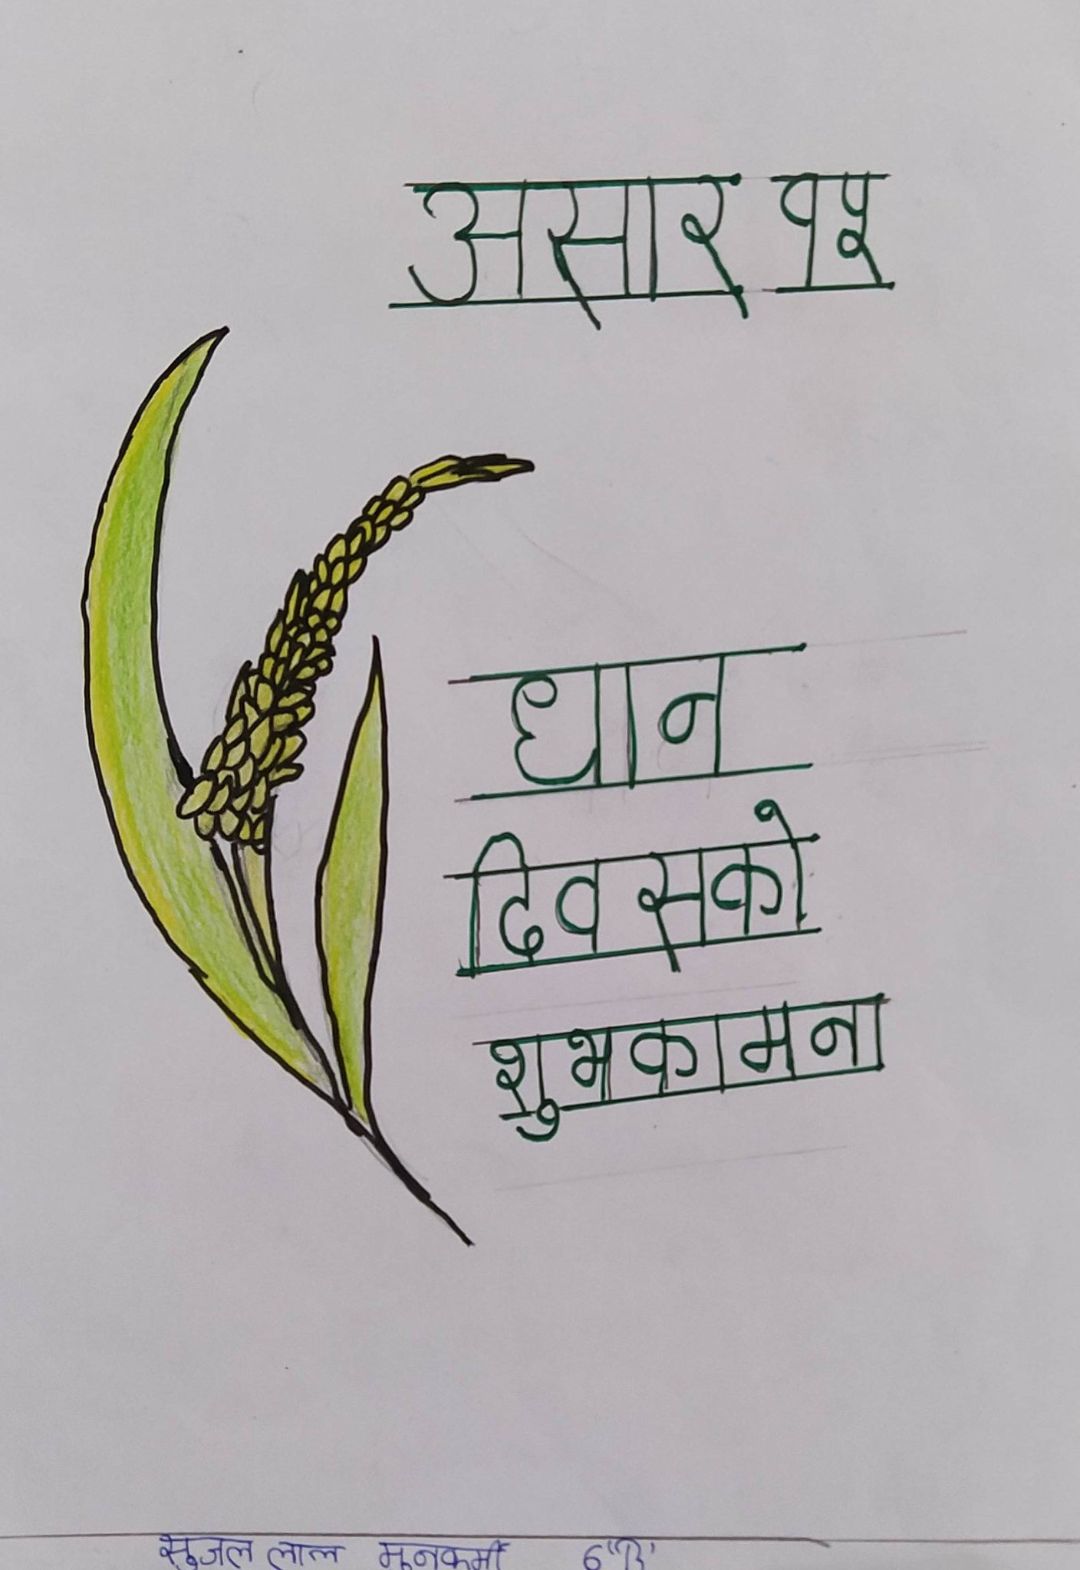 असार १५
धान
दिवसको
शुभकामना
सुजल लाल मूनकर्मी 6 "B"